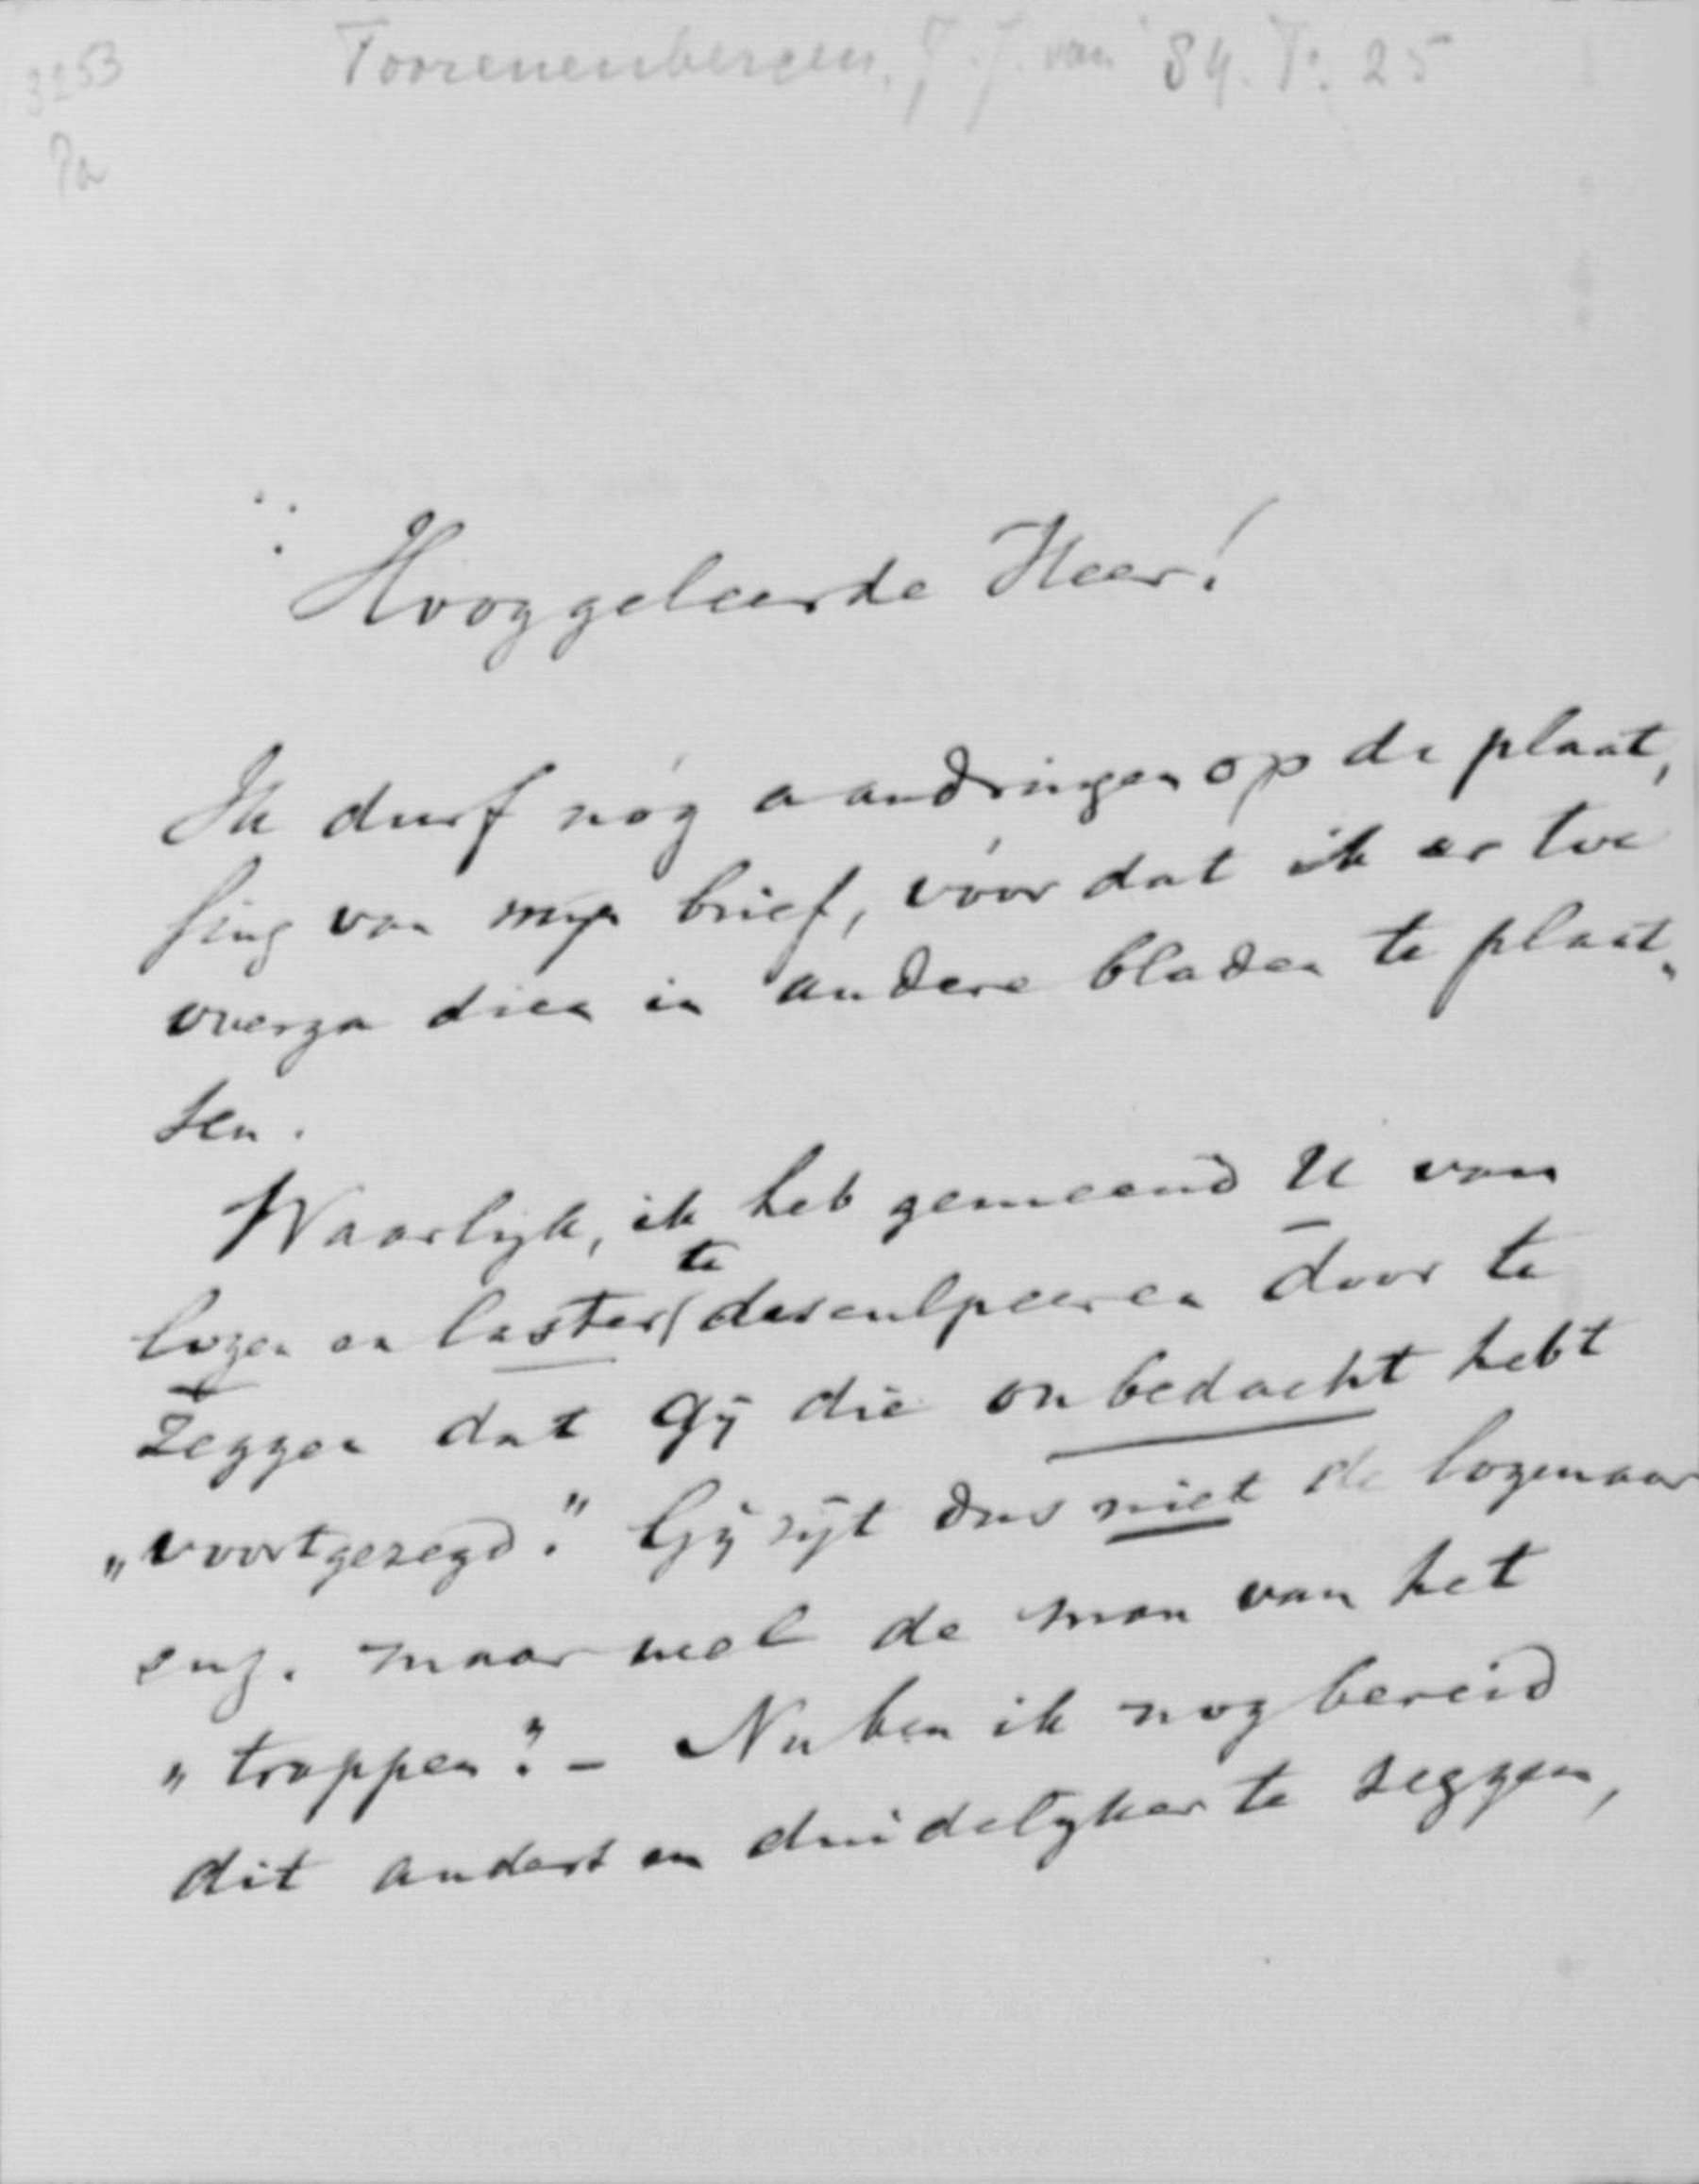 3253
Toorenenbergen, J. J. van 84. V. 25
Pa
Hooggeleerde Heer!
Ik durf nóg aandringen op de plaat,
sing van mijn brief, vóór dat ik er toe
overga dien in andere bladen te plaat„
sen.
Waarlijk, ik heb gemeend U van
te
logen en laster desculpeeren door te
zeggen dat Gij die onbedacht hebt
„voortgezegd." Gij zijt dus niet de logenaar
enz. maar wel de man van het
„trappen". – Nu ben ik nog bereid
dit anders en duidelijker te zeggen,